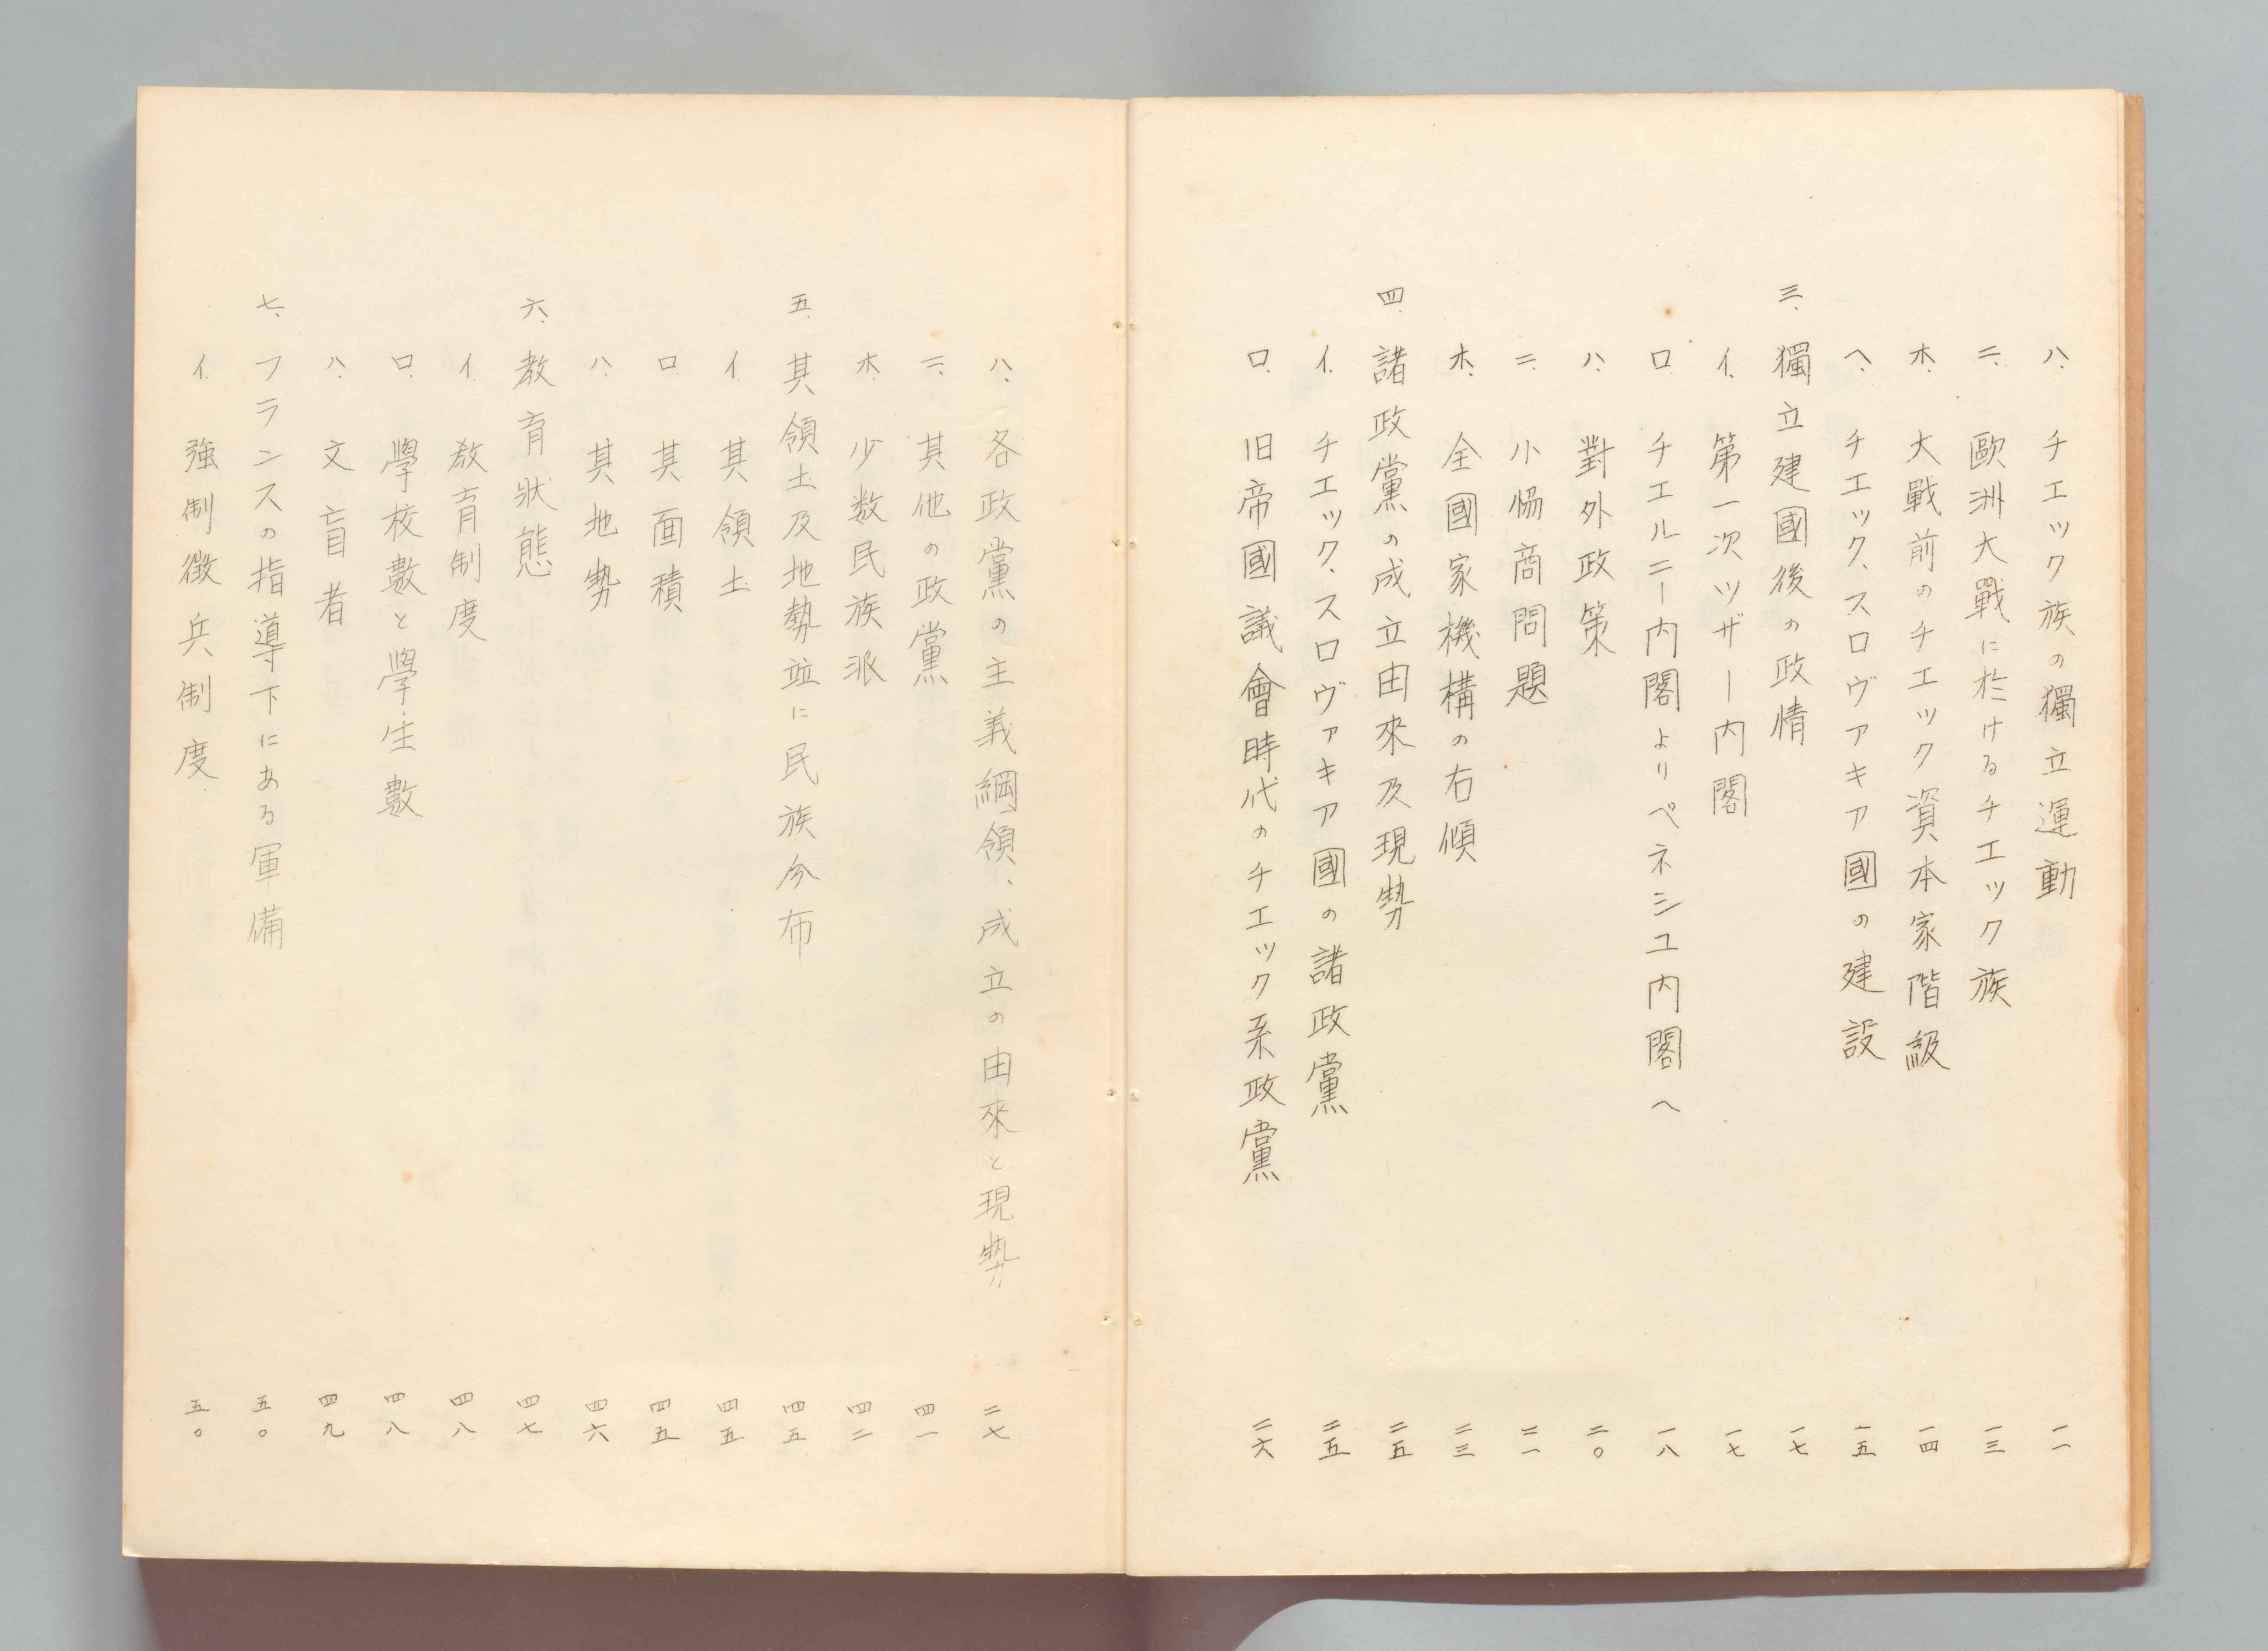 ハ、チエック族の獨立運動 一一
ニ、歐洲大戰に於けるチエック族 一三
ホ、大戰前のチエック資本家階級 一四
ヘ、チエック、スロヴアキア國の建設 一五
三、獨立建國後の政情 一七
イ、第一次ツザー内閣 一七
ロ、チエルニー内閣よりペネシユ内閣へ 一八
ハ、對外政策 二〇
ニ、小協商問題 二一
ホ、全國家機構の右傾 二三
四、諸政黨の成立由來及現勢 二五
イ、チエック、スロヴァキア國の諸政黨 二五
ロ、旧帝國議會時代のチエック系政黨 二六
ハ、各政黨の主義綱領、成立の由來と現勢 二七
ニ、其他の政黨 四一
ホ、少数民族派 四二
五、其領土及地勢竝に民族分布 四五
イ、其領土 四五
ロ、其面積 四五
ハ、其地勢 四六
六、教育狀態 四七
イ、教育制度 四八
ロ、學校數と學生數 四八
ハ、文盲者 四九
七、フランスの指導下にある軍備 五〇
イ、強制徴兵制度 五〇